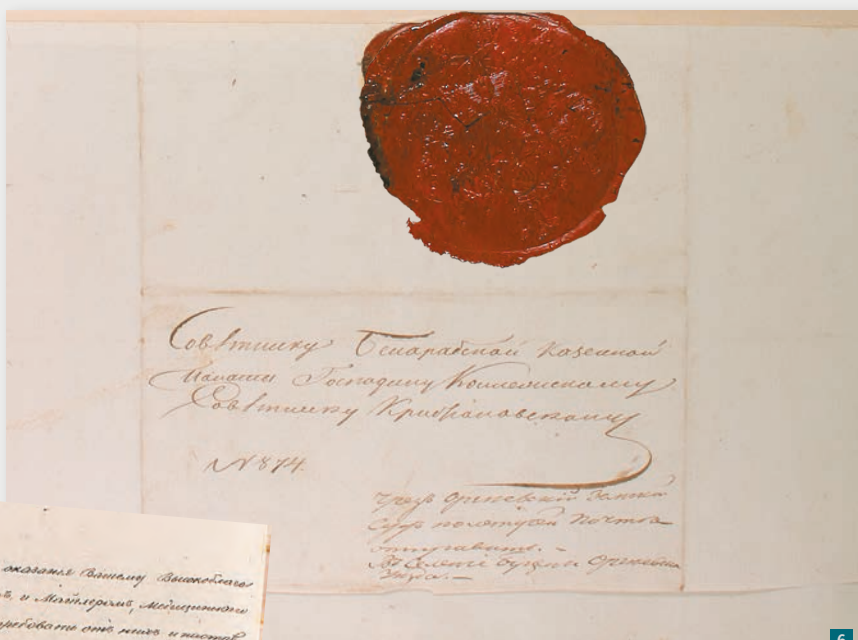 Совѣтнику Бесарабской казенной
Палаты Господину Коллежскому
Совѣтнику Криб
N 874.
Чрезъ Оргеевскій Земскій
Судъ по летучей почтѣ
отправить. -
Въ Селеніе Оргеевск
оказанія Вашему Высокоблаго
и Майлеромъ, Медицинскаго
требовать отъ нихъ и настав
6